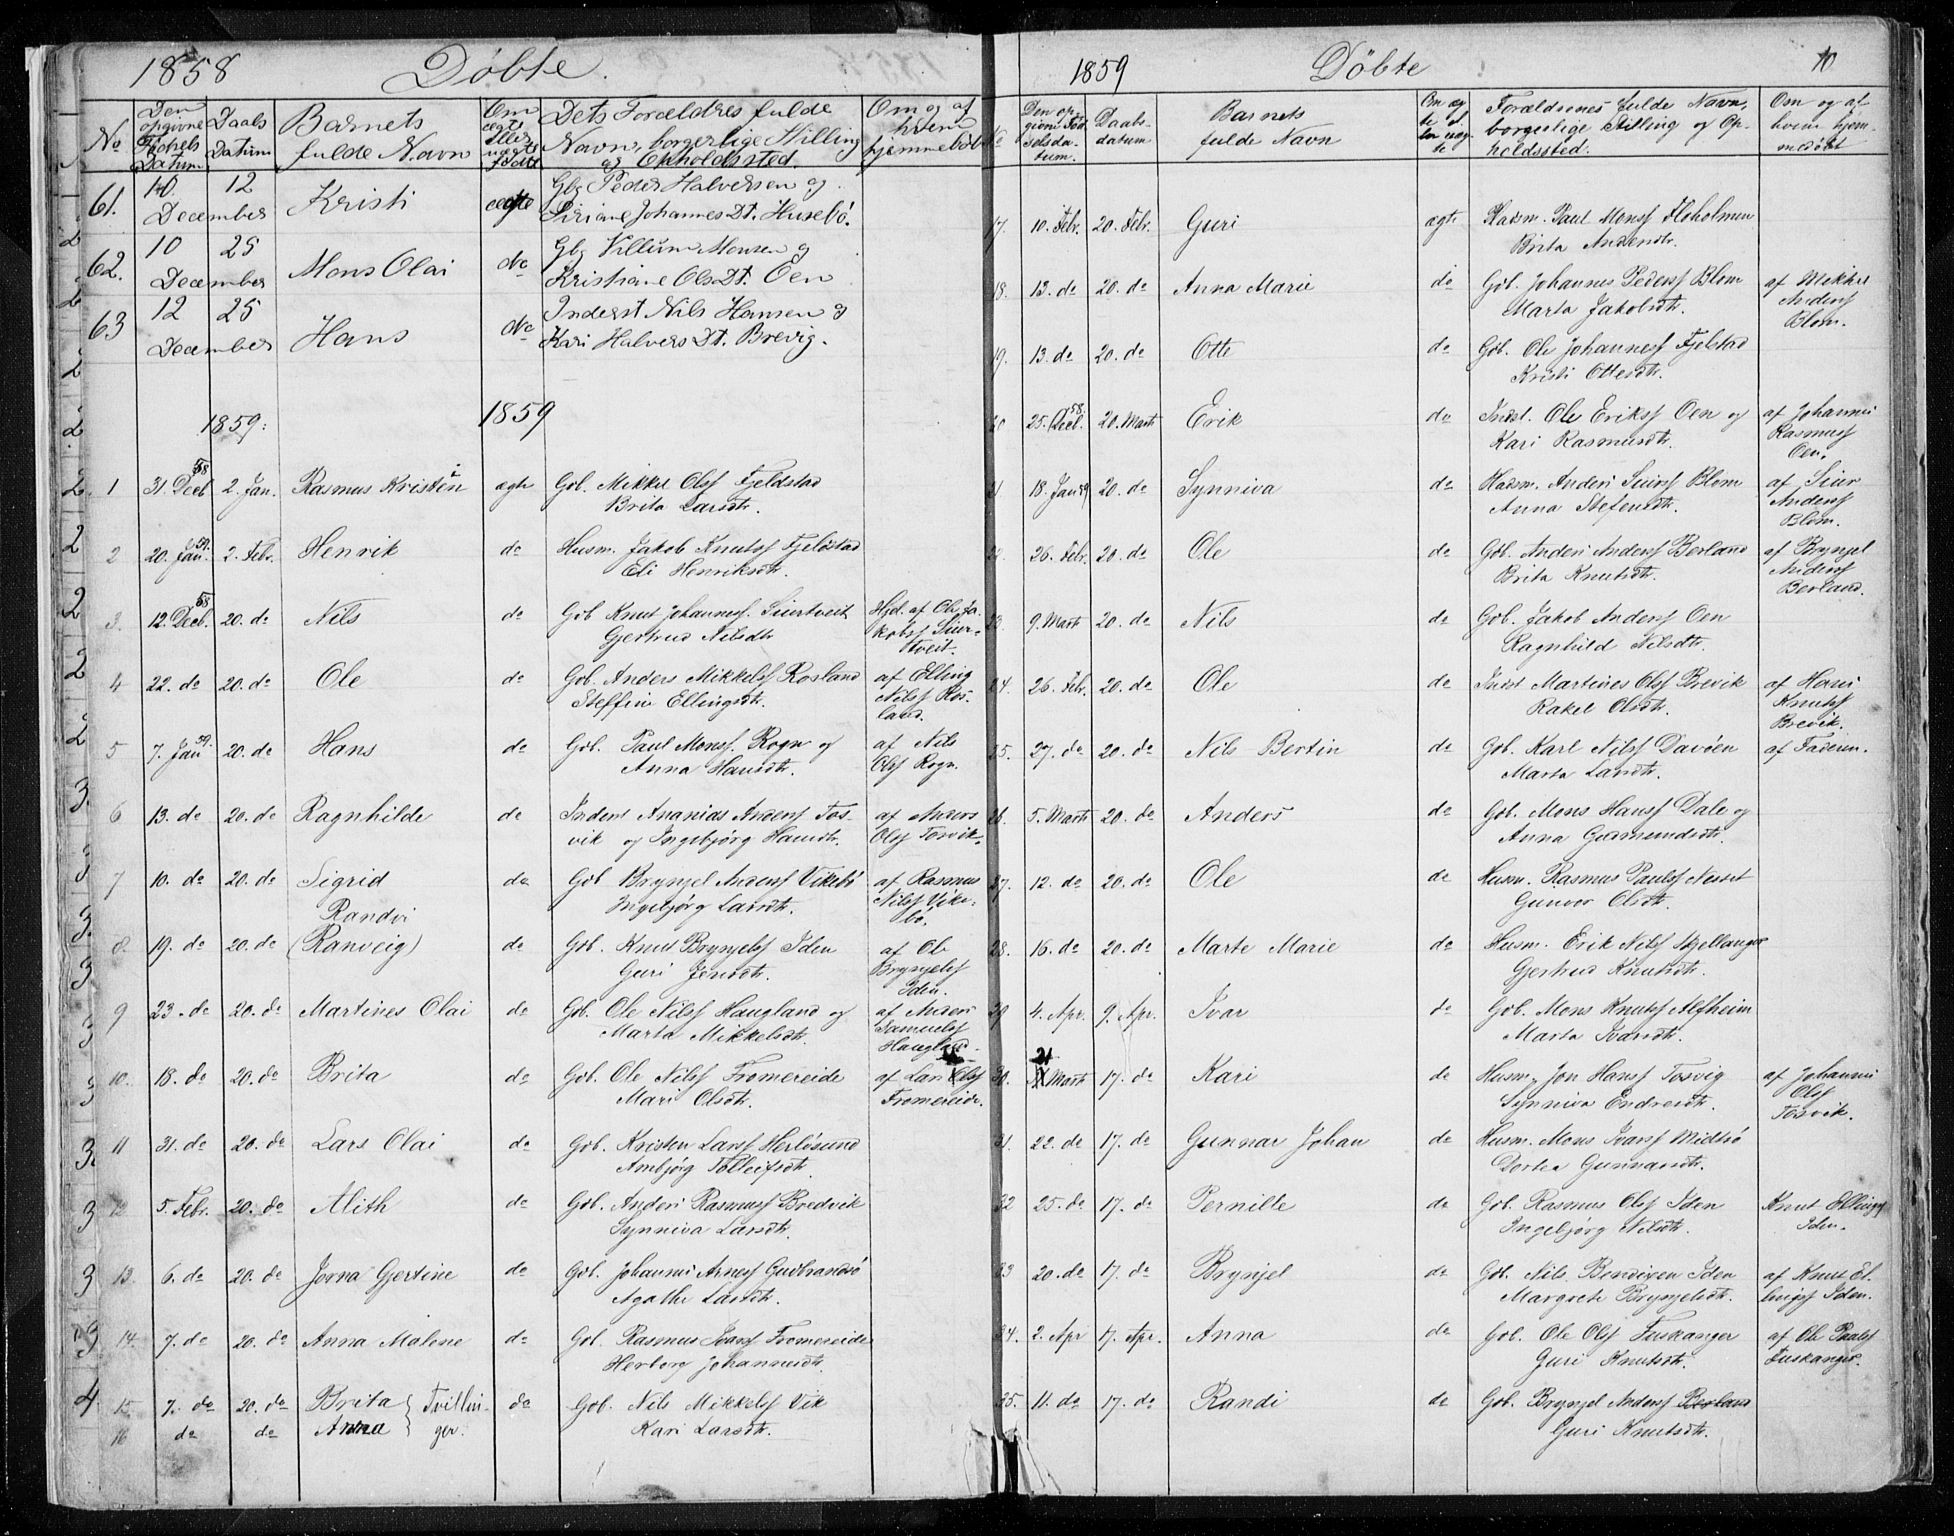 1858 Döbte.
No
Den opgivne Fødsels Datum
Daabs Datum
Barnets fulde Navn
Om ægte eller uægte Födt
Dets Forældres fulde Navn, borgerlige Stilling og Opholdssted.
Om og af hvem hjemmedöbt
61. 10 December 12 Kristi ægte Gbr Peder Halversen og
Siriane Johannes Dt. Husebö.
62. 10 December 25 Mons Olai do Gbr Villum Monsen og
Kristiane Ols Dt. Öen
63 12 December 25 Hans do Inderst Nils Hansen og
Kari Halvers Dt. Brevig.
1859: 1859
1 31. Decb 58 2. Jan. Rasmus Kristin ægte Gbr. Mikkel Olsf Fjeldstad
Brita Larsdtr.
2 20. Jan. 59. 2. Febr. Henrik do Husm. Jakob Knutsf Fjeldstad
Eli Henriksdtr.
3. 12. Decb. 58 20. do Nils do Gbr Knut Johannesf. Siurtveit Hjd. af Ole Ja-
Gjertrud Nilsdtr kobsf Siur-
tveit.
4 22. do 20. do Ole do Gbr. Anders Mikkelsf Rosland af Elling
Steffine Ellingsdtr. Nilsf Ros-
land.
5 7. Jan 59. 20. do Hans do Gbr. Paul Monsf. Rogn og af Nils
Anna Hansdtr. Olsf Rogn.
6 13. do 20. do Ragnhilde do Inderst Ananias Andersf Tos- af Anders
vik og Ingebjörg Hansdtr. Olsf Tosvik.
7 10. do 20. do Sigrid do Gbr Brynjel Andersf Vikebö af Rasmus
Ingebjörg Larsdtr. Nilsf Vike-
bö.
Randvi
8. 19. do 20. do (Ranveig) do Gbr. Knut Brynjelsf Iden af Ole
Guri Jensdtr. Brynjelsf
Iden.
9 23. do 20. do Martines Olai do Gbr. Ole Nilsf Haugland og af Anders
Marta Mikkelsdtr. Samuelsf
Haugland.
10. 18. do 20. do Brita do Gbr. Ole Nilsf Fromereide af Lars Olsf
Mari Olsdtr. Fromereide.
11 31. do 20. do Lars Olai do Gbr. Kristen Larsf Herlösund
Ambjörg Tolleifsdtr.
12 5. Febr. 20. do Alith do Gbr. Anders Rasmusf Bredvik
Synniva Larsdtr.
13. 6. do 20. do Jorna Gjertine do Gbr. Johannes Arnesf Gudbrandsö
Agathe Larsdtr.
14. 7. do 20. do Anna Malene do Gbr. Rasmus Ivarsf Fromereide
Herborg Johannesdtr.
15 7. do 20. do Brita } Tvillin- do Gbr. Nils Mikkelsf Vik
16 do do Anna } ger. Kari Larsdtr.
1859 Döbte 10
No
Den opgivne Fødselsdatum.
Daabs-datum
Barnets fulde Navn
Om ægte eller uægte
Forældrenes fulde Navn, borgerlige Stilling og Opholdssted.
Om og af hvem hjemmedöbt
17. 10. Febr. 20. Febr. Guri ægte Husm. Paul Monsf Floholmen
Brita Andersdtr.
18. 13. do 20. do Anna Marie do Gbr. Johannes Pedersf Blom af Mikkel
Marta Jakobsdtr. Andersf
Blom.
19. 13. do 20. do Otte do Gbr. Ole Johannesf Fjelstad
Kristi Ottesdtr.
20 25. Decb. 58. 20. Marts Erik do Indst. Ole Eriksf Öen og af Johannes
Kari Rasmusdtr. Rasmusf
Öen.
21 18. Jan 59 20. do Synniva do Husm. Anders Siursf Blom af Siur
Anna Stefensdtr. Andersf
Blom.
22. 26. Febr. 20. do Ole do Gbr. Anders Andersf Berland af Brynjel
Brita Knutsdtr. Andersf
Berland.
23. 9. Marts 20. do Nils do Gbr. Jakob Andersf Öen
Ragnhild Nilsdtr.
24. 26. Febr. 20. do Ole do Indst Martines Olsf Brevik af Hans
Rakel Olsdtr. Knutsf
Brevik.
25. 27. do 20. do Nils Bertin do Gbr. Karl Nilsf Davöen af Faderen.
Marta Larsdtr.
26. 5. Marts 20. do Anders do Gbr. Mons Hansf Dale og
Anna Germundsdtr.
27. 12. do 20. do Ole do Husm. Rasmus Paulsf Nesset
Gunvor Olsdtr.
28. 16. do 20. do Marte Marie do Husm. Erik Nilsf Skjellanger
Gjertrud Knutsdtr.
29 4. Apr. 9. Apr. Ivar do Gbr. Mons Knutsf Alfheim
Marta Ivarsdtr.
30. 21 Marts 17. do Kari do Husm. Jon Hansf Tosvig af Johannes
Synniva Endresdtr. Olsf
Tosvik.
31. 22. do 17. do Gunnar Johan do Husm. Mons Ivarsf Midtsö
Dortea Gunnarsdtr.
32 25. do 17. do Pernille do Gbr. Rasmus Olsf Iden Knut Ellingsf
Ingebjörg Nilsdtr. Iden.
33 20. do 17. do Brynjel do Gbr. Nils Bendixen Iden af Knut El-
Margrete Brynjelsdtr. lingsf Iden.
34. 2. Apr 17. Apr. Anna do Gbr. Ole Olsf Tuskanger af Ole Paulsf
Guri Knutsdtr. Tuskanger.
35. 11. do 17. do Randi do Gbr. Brynjel Andersf Berland
Guri Knutsdtr.